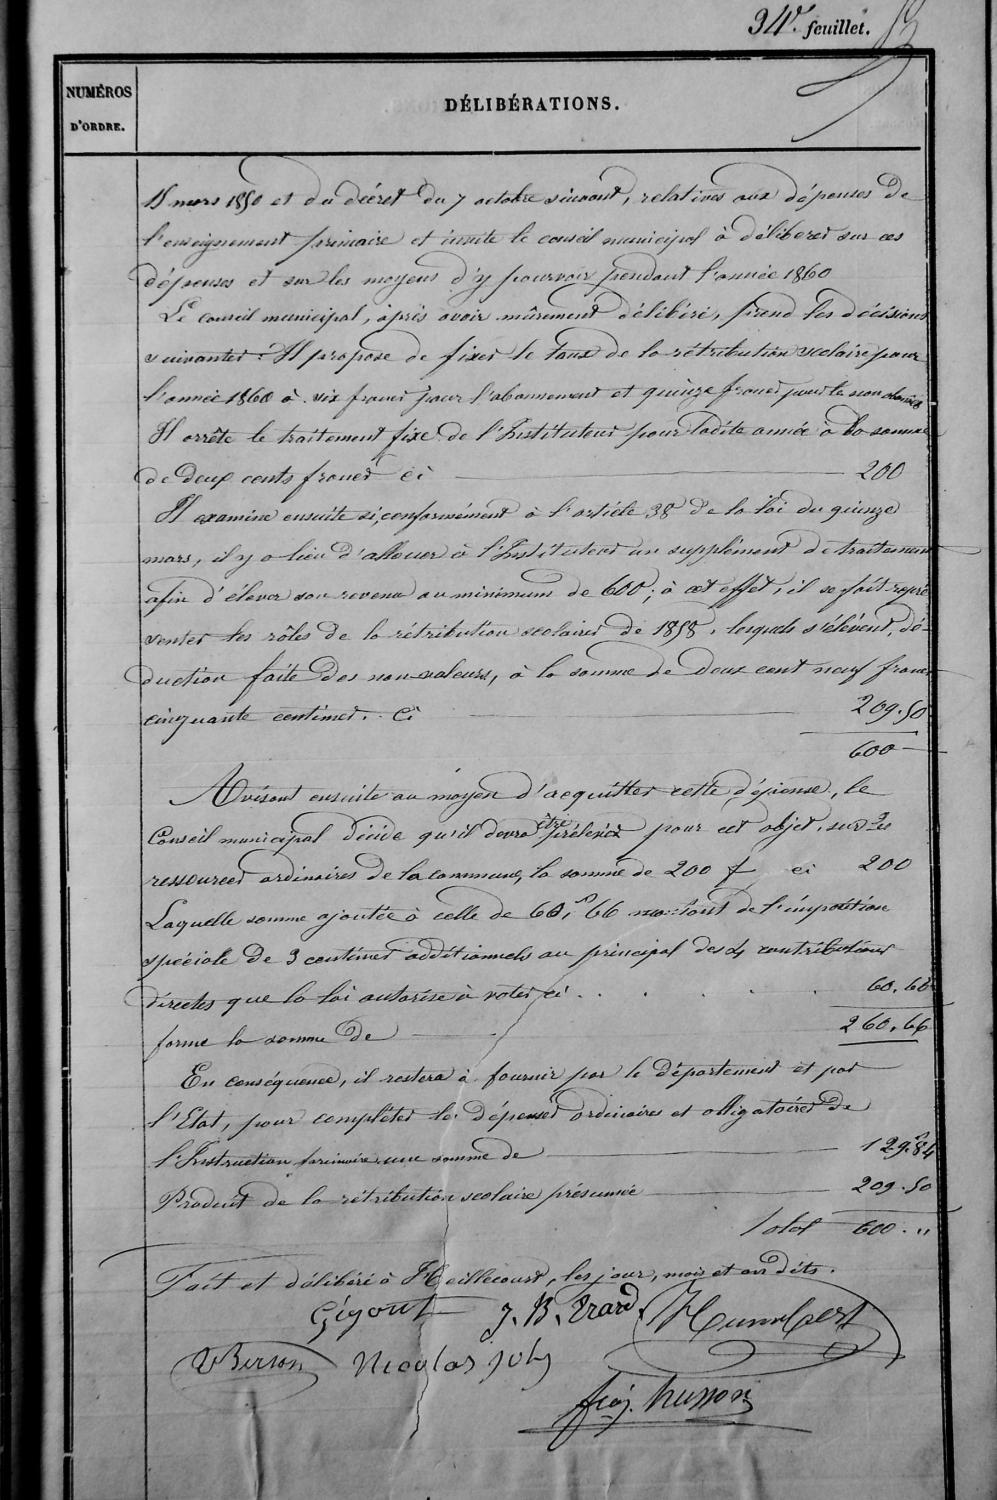 34e. feuillet.
NUMÉROS
D'ORDRE.
DÉLIBÉRATIONS.
15 mars 1850 et du décret du 7 octobre suivant, relatives aux dépenses de
l'enseignement primaire et invite le conseil municipal à délibérer sur ces
dépenses et sur les moyens d'y pourvoir pendant l'année 1860
Le conseil municipal, après avoir mûrement délibéré, prend les décisions
suivantes : Il propose de fixer le taux de la rétribution scolaire pour
l'année 1860 à six francs pour l'abonnement et quinze francs pour le non abonné
Il arrête le traitement fixe de l'Instituteur pour ladite année à la somme
de deux cents francs ci 200
Il examine ensuite si, conformément à l'article 38 de la loi du quinze
mars, il y a lieu d'allouer à l'Instituteur un supplément de traitement
afin d'élever son revenu au minimum de 600 ; à cet effet, il se fait repré
senter les rôles de la rétribution scolaires de 1858, lesquels s'élèvent, dé-
duction faite des non-valeurs, à la somme de deux cent neuf francs
cinquante centimes. ci 209.50
600
Avisant ensuite au moyen d'acquitter cette dépense, le
Conseil municipal décide qu'il devra être prélevé pour cet objet, sur les
ressources ordinaires de la commune, la somme de 200 f ci 200
Laquelle somme ajoutée à celle de 60,f 66 montant de l'imposition
spéciale de 3 centimes additionnels au principal des 4 contributions
directes que la loi autorise à voter ci . . . . . 60.66
forme la somme de 260.66
En conséquence, il restera à fournir par le département et par
l'Etat, pour compléter les dépenses ordinaires et obligatoires de
l'Instruction primaire une somme de 129.f84
Produit de la rétribution scolaire présumée 209.50
Total 600. "
Fait et délibéré à Heillecourt, les jour, mois et an dits.
Gigout J. B. Erard Humbert
VBerson Nicolas Joly
fcois. husson